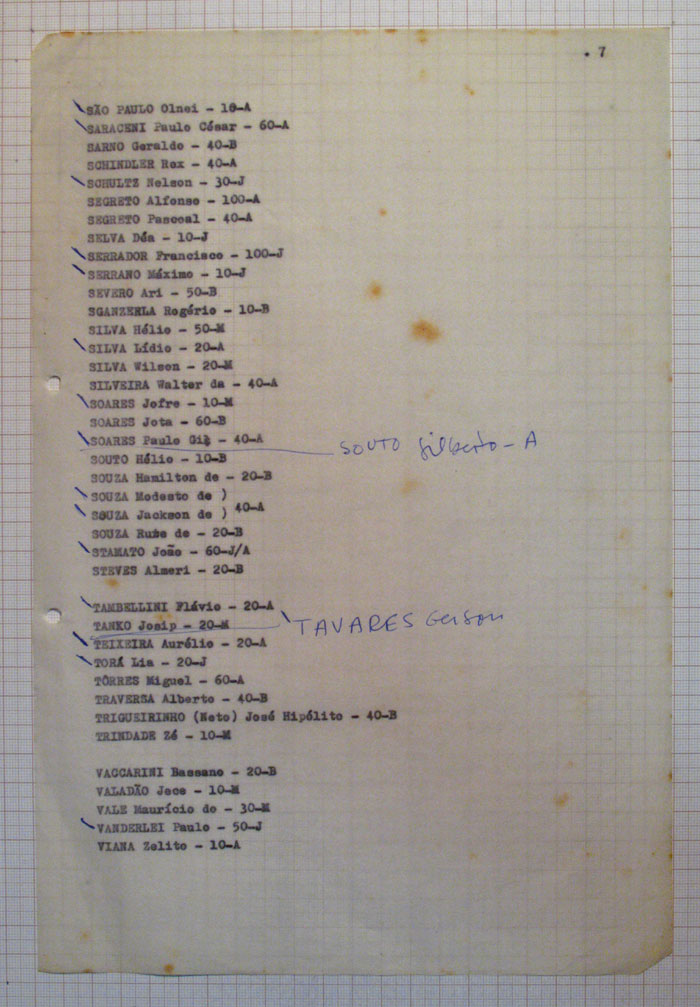 . 7
SÃO PAULO Olnei - 10-A
SARACENI Paulo César - 60-A
SARNO Geraldo - 40-B
SCHINDLER Rex - 40-A
SCHULTZ Nelson - 30-J
SEGRETO Alfonso - 100-A
SEGRETO Pascoal - 40-A
SELVA Déa - 10-J
SERRADOR Francisco - 100-J
SERRANO Máximo - 10-J
SEVERO Ari - 50-B
SGANZERLA Rogério - 10-B
SILVA Hélio - 50-M
SILVA Lídio - 20-A
SILVA Wilson - 20-M
SILVEIRA Walter da - 40-A
SOARES Jofre - 10-M
SOARES Jota - 60-B
SOARES Paulo Gil - 40-A
SOUTO Gilberto - A
SOUTO Hélio - 10-B
SOUZA Hamilton de - 20-B
SOUZA Modesto de )
SOUZA Jackson de ) 40-A
SOUZA Rube de - 20-B
STAMATO João - 60-J/A
STEVES Almeri - 20-B
TAMBELLINI Flávio - 20-A
TANKO Josip - 20-M
TAVARES Gerson
TEIXEIRA Aurélio - 20-A
TORÁ Lia - 20-J
TÔRRES Miguel - 60-A
TRAVERSA Alberto - 40-B
TRIGUEIRINHO (Neto) José Hipólito - 40-B
TRINDADE Zé - 10-M
VACCARINI Bassano - 20-B
VALADÃO Jece - 10-M
VALE Maurício do - 30-M
VANDERLEI Paulo - 50-J
VIANA Zelito - 10-A